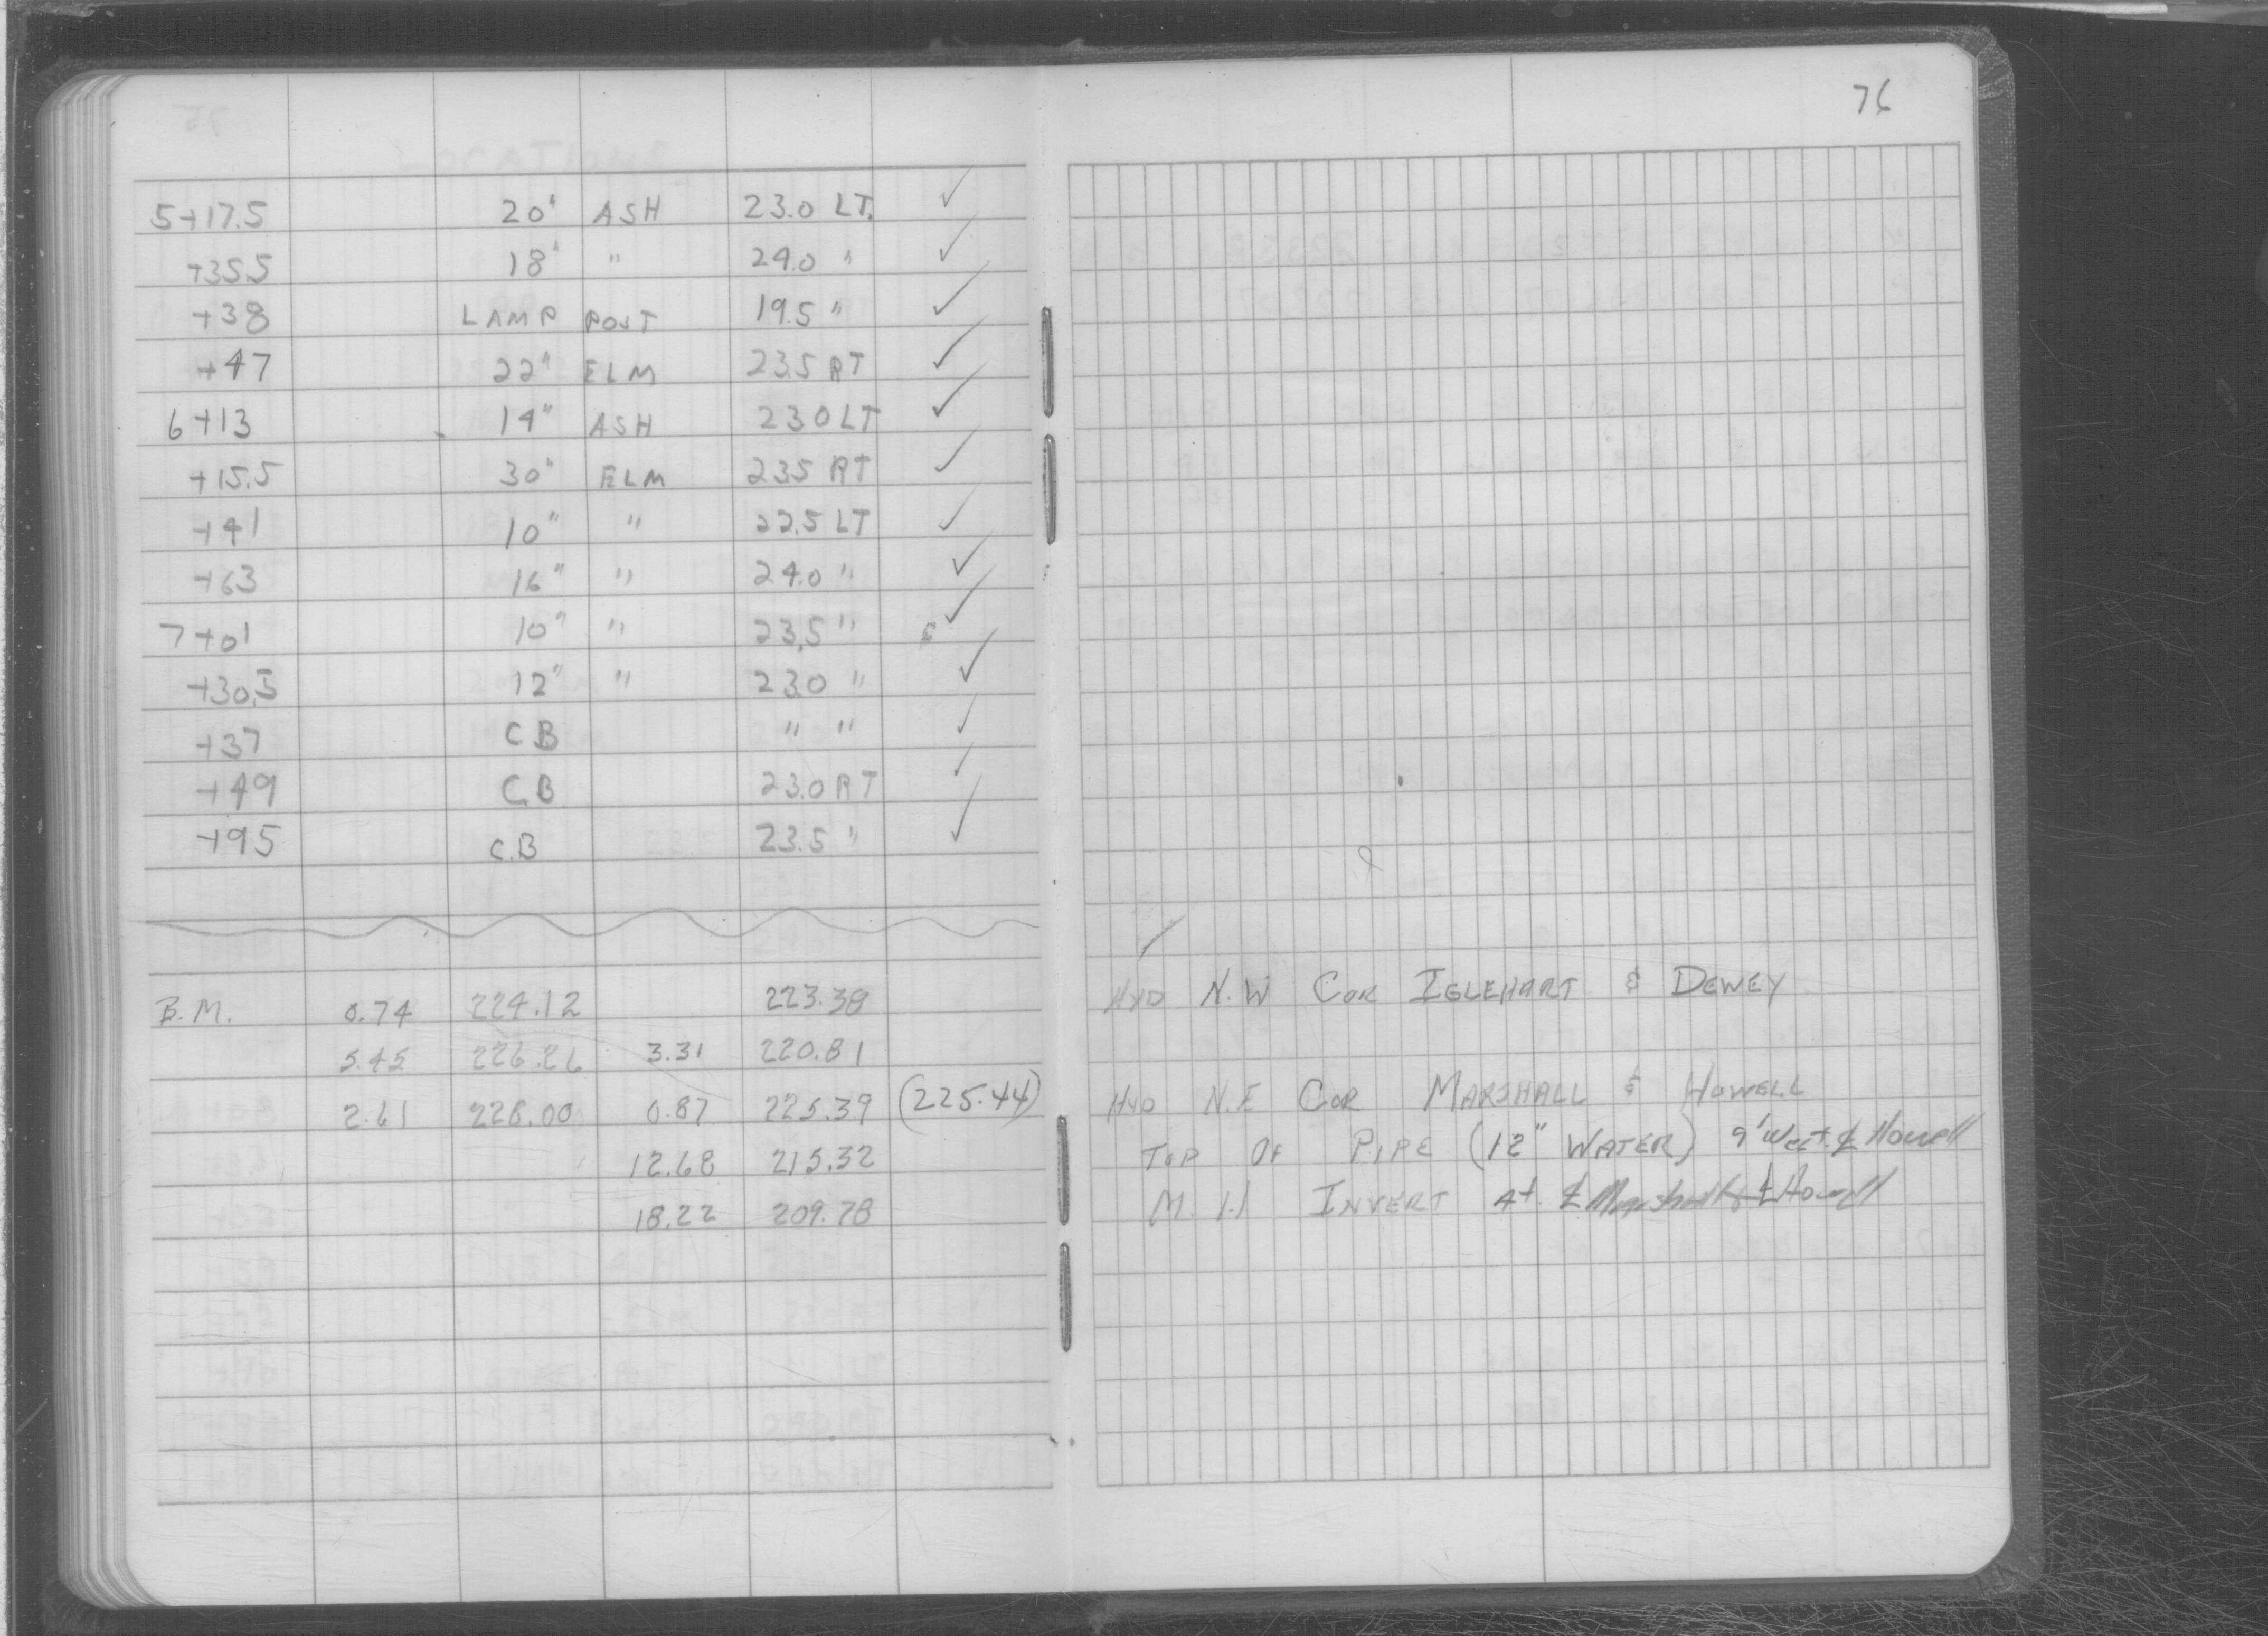 76
5+17.5 20" ASH 23.0 LT. ✓
+35.5 18" " 24.0 " ✓
+38 LAMP POST 19.5 " ✓
+47 22" ELM 23.5 RT ✓
6+13 14" ASH 23.0 LT ✓
+15.5 30" ELM 23.5 RT ✓
+41 10" " 22.5 LT ✓
+63 16" " 24.0 " ✓
7+01 10" " 23.5 " ✓
+30.5 12" " 23.0 " ✓
+37 C.B " " ✓
+49 C.B 23.0 RT ✓
+95 C.B 23.5 " ✓
B.M. 0.74 224.12 223.38 HYD N.W COR IGLEHART & DEWEY
5.45 226.26 3.31 220.81
2.61 228.00 0.87 225.39 (225.44) HYD N.E COR MARSHALL & HOWELL
12.68 215.32 TOP OF PIPE (12" WATER) 9' West ℄ Howell
18.22 209.78 M.H INVERT at ℄ Marshall & ℄ Howell